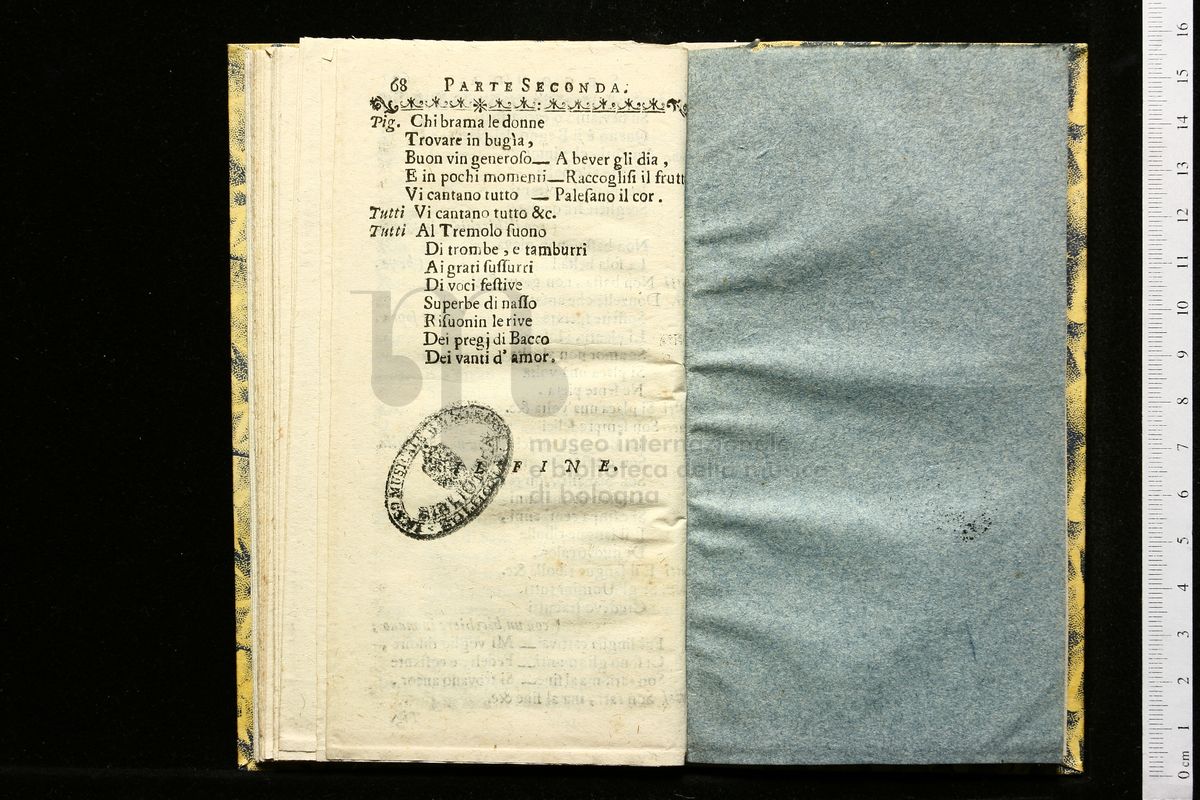 68 PARTE SECONDA.
Pig. Chi brama le donne
Trovare in bugìa ,
Buon vin generoſo— A bever gli dia ,
E in pochi momenti—Raccogliſi il frutt
Vi cantano tutto — Paleſano il cor .
Tutti Vi cantano tutto &c.
Tutti Al Tremolo ſuono
Di trombe , e tamburri
Ai grati ſuſſurri
Di voci feſtive
Superbe di naſſo
Riſuonin le rive
Dei pregj di Bacco
Dei vanti d' amor .
IL FINE.
museo internazionale
e biblioteca della musica
di bologna
LICEO MUSICALE
BIBLIOTECA
0 cm 1 2 3 4 5 6 7 8 9 10 11 12 13 14 15 16